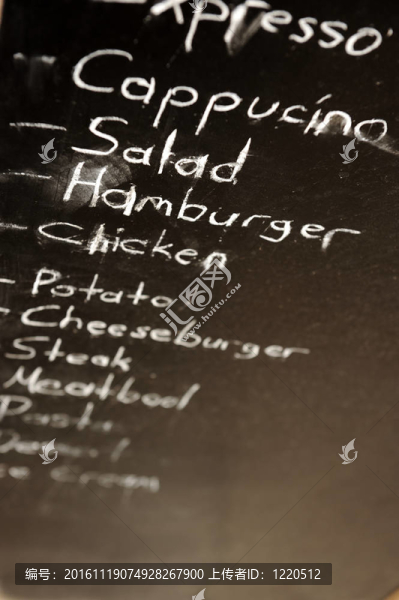 Expresso
- Cappucino
- Salad
- Hamburger
- Chicken
- Potato
- Cheeseburger
Steak
Meatbool
Pasta
Cream
www.huitu.com
编号：20161119074928267900 上传者ID：1220512